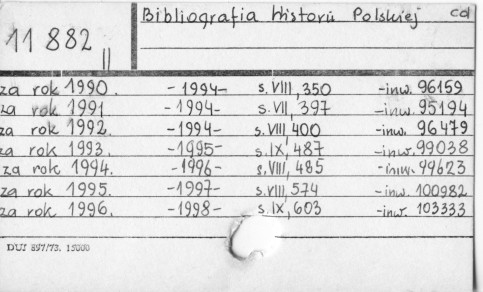 Bibliografia Historii Polskiej cd
11 882 II
za rok 1990. - 1994 - s. VIII, 350 - inw. 96159
za rok 1991 - 1994 - s. VII, 397 - inw. 95194
za rok 1992. - 1994 - s. VIII, 400 - inw. 96479
za rok 1993. - 1995 - s. IX, 487 - inw. 99038
za rok 1994. - 1996 - s. VIII, 485 - inw. 99623
za rok 1995. - 1997 - s. VIII, 574 - inw. 100982
za rok 1996. - 1998 - s. IX, 603 - inw. 103333
DUJ 897/73. 15000